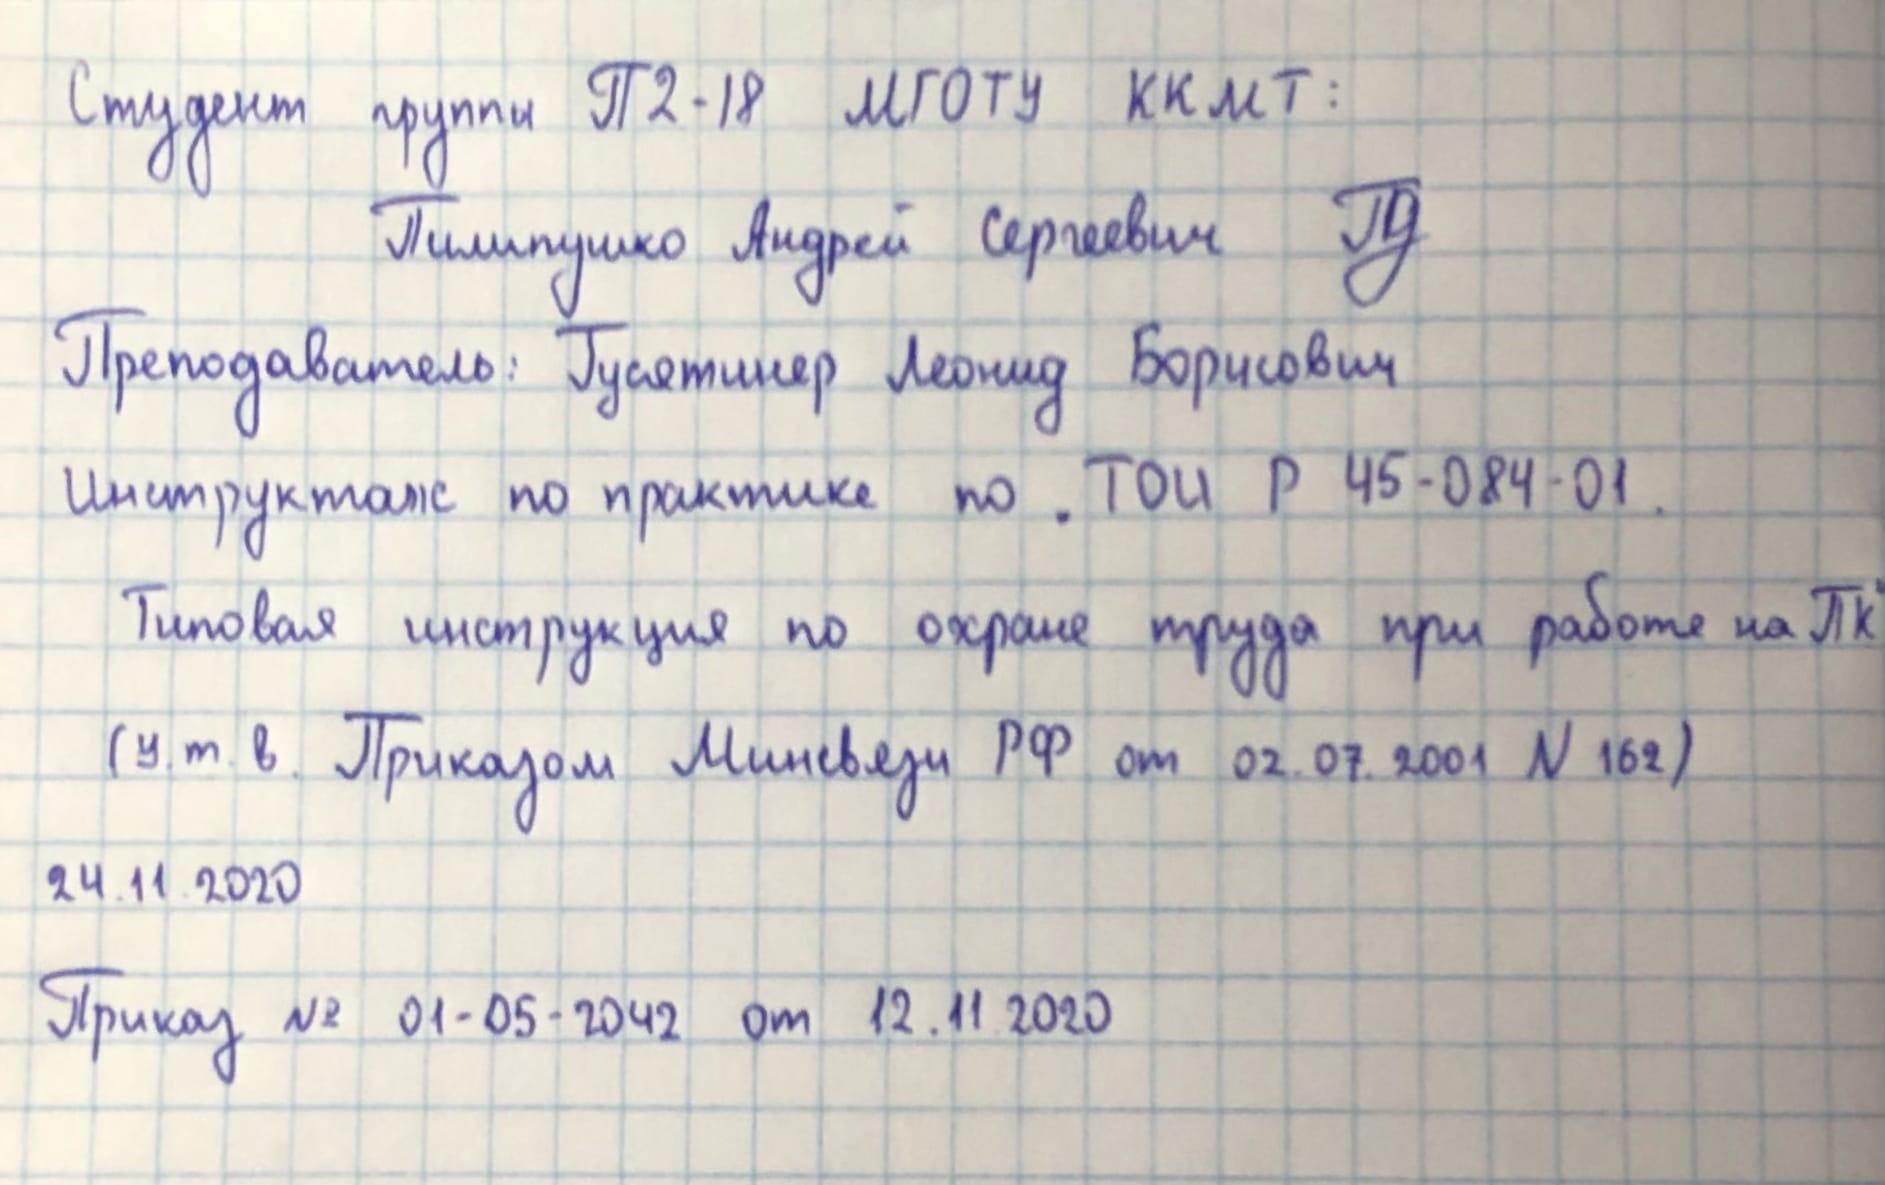 Студент группы П2-18 МГОТУ ККМТ:
Пилипушко Андрей Сергеевич
Преподаватель: Гусятинер Леонид Борисович
Инструктаж по практике по . ТОИ Р 45-084-01.
Типовая инструкция по охране труда при работе на ПК"
(у.т.в. Приказом Минсвязи РФ от 02.07.2001 N 162)
24.11.2020
Приказ № 01-05-2042 от 12.11.2020